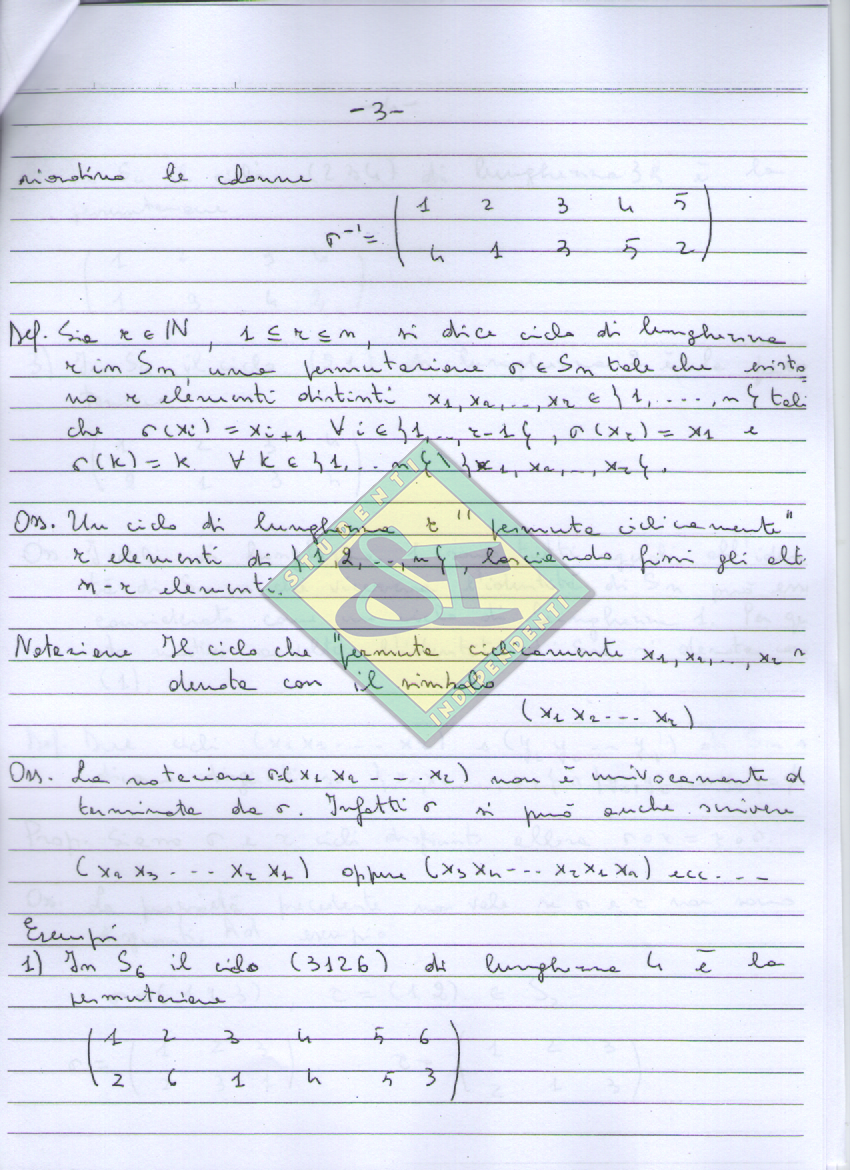 -3-
riordino le colonne
σ⁻¹ = ( 1 2 3 4 5
4 1 3 5 2 )
Def. Sia r ∈ ℕ, 1 ≤ r ≤ n, si dice ciclo di lunghezza
r in Sn, una permutazione σ ∈ Sn tale che esisto
no r elementi distinti x1, x2, .., xr ∈ {1, ...., n} tali
che σ(xi) = xi+1 ∀ i ∈ {1,.., r-1}, σ(xr) = x1 e
σ(k) = k ∀ k ∈ {1, .. n} \ {x1, x2, .., xr}.
Oss. Un ciclo di lunghezza r "permuta ciclicamente"
r elementi di {1,2, .., n}, lasciando fissi gli alt
n-r elementi.
STUDENTI
SI
INDIPENDENTI
Notazione Il ciclo che "permuta ciclicamente x1, x2, .., xr s
denota con il simbolo
(x1 x2 --- xr)
Oss. La notazione σ=(x1 x2 - - xr) non è univocamente d
terminata da σ. Infatti σ si può anche scrivere
(x2 x3 --- xr x1) oppure (x3 x4 --- xr x1 x2) ecc. - - -
Esempi
1) In S6 il ciclo (3126) di lunghezza 4 è la
permutazione
( 1 2 3 4 5 6
2 6 1 4 5 3 )